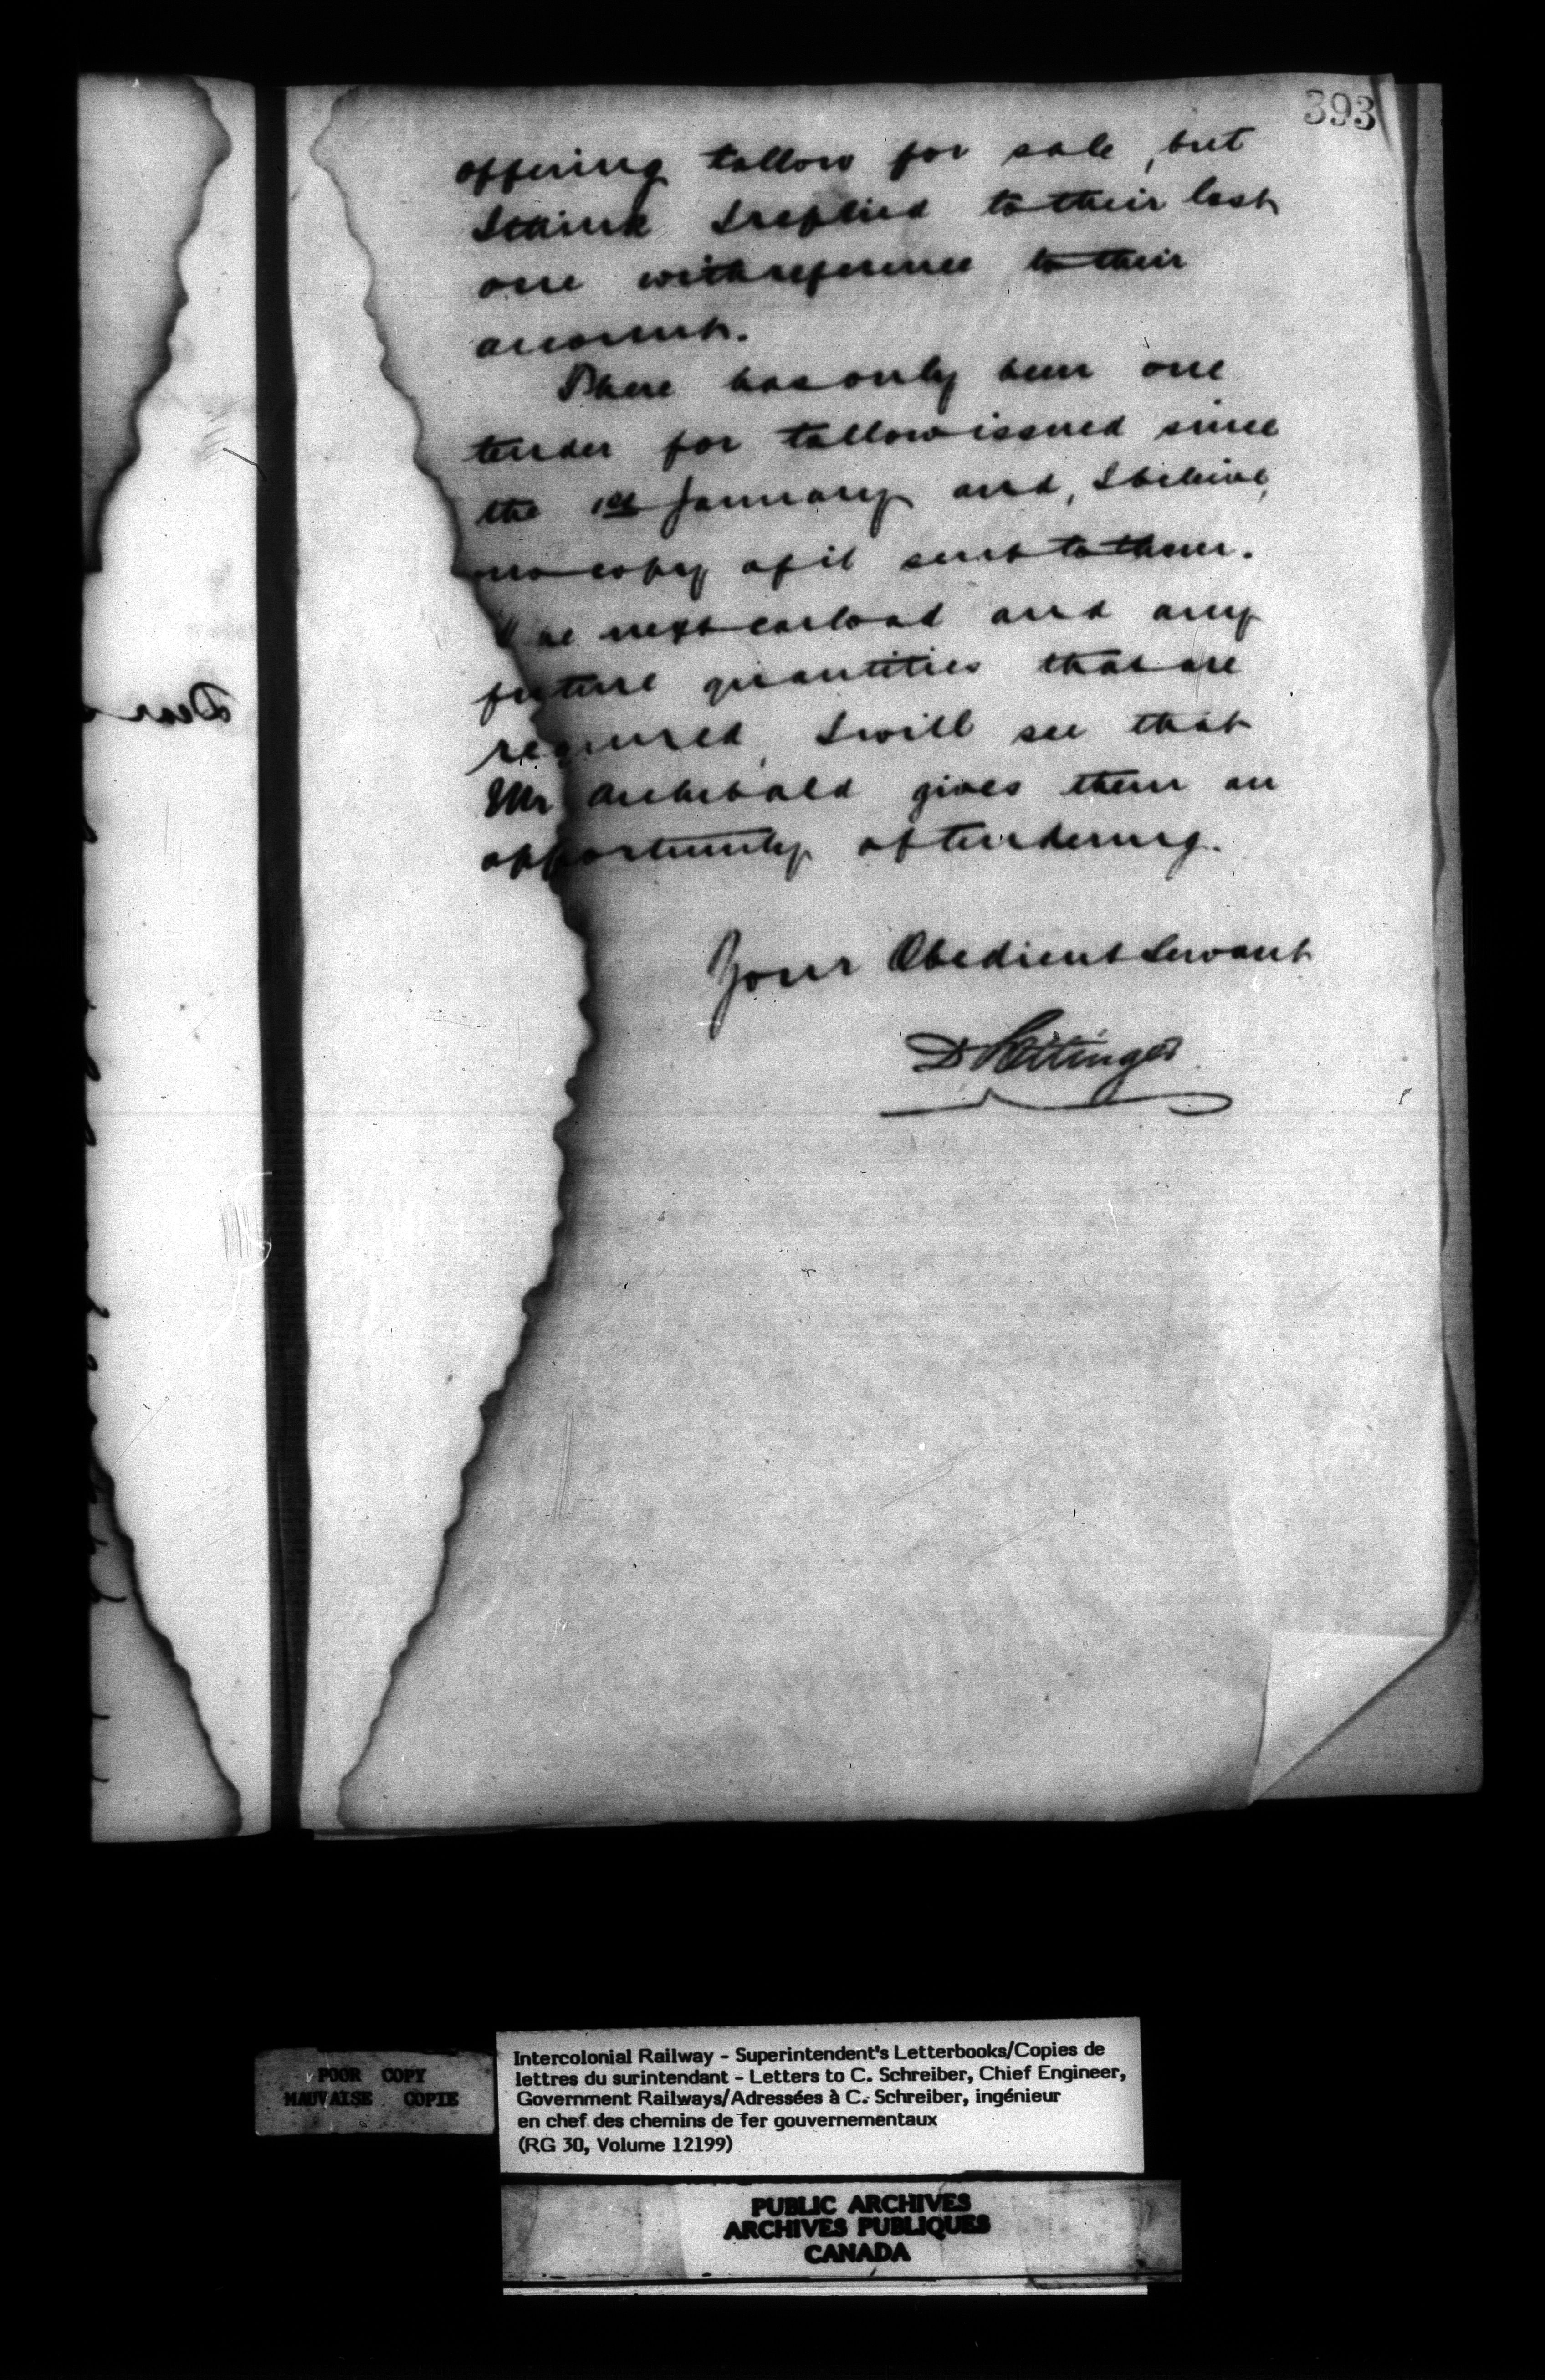 393
offering tallow for sale, but
I think I replied to their last
one with reference to their
account.
There has only been one
tender for tallow issued since
the 1st January and, I believe,
no copy of it sent to them.
The next carload and any
future quantities that are
required, I will see that
Mr Archibald gives them an
opportunity of tendering.
Your Obedient Servant
D Pottinger
Dear
POOR COPY
MAUVAISE COPIE
Intercolonial Railway - Superintendent's Letterbooks/Copies de
lettres du surintendant - Letters to C. Schreiber, Chief Engineer,
Government Railways/Adressées à C. Schreiber, ingénieur
en chef des chemins de fer gouvernementaux
(RG 30, Volume 12199)
PUBLIC ARCHIVES
ARCHIVES PUBLIQUES
CANADA